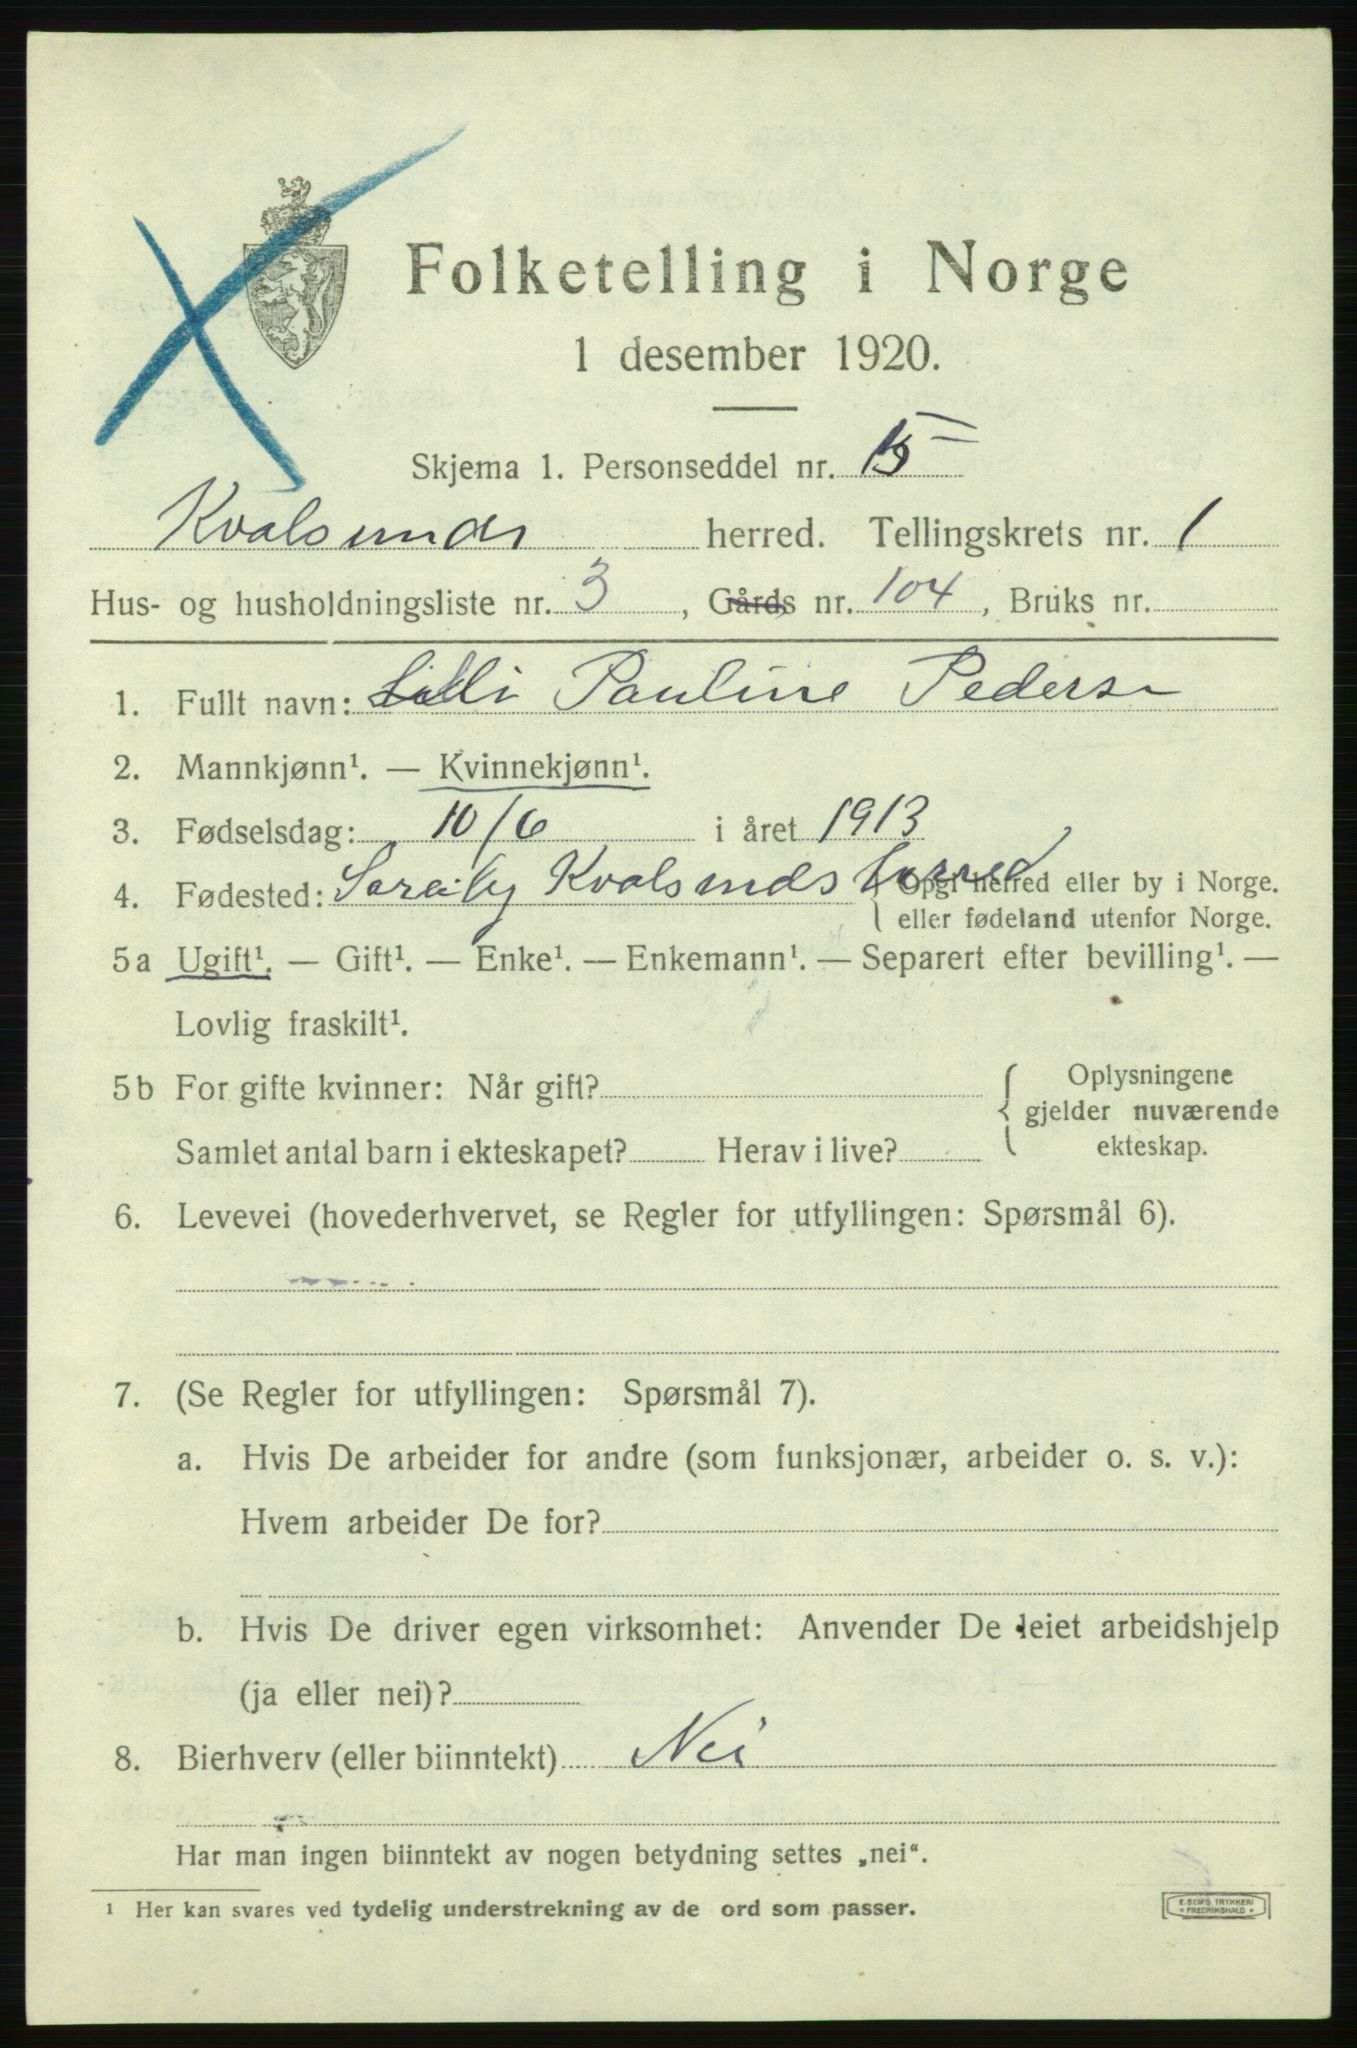 Folketelling i Norge
1 desember 1920.
Skjema 1. Personseddel nr. 15
Kvalsunds herred. Tellingskrets nr. 1
Hus- og husholdningsliste nr. 3, Gårds nr. 104, Bruks nr.
1. Fullt navn: Lilli Pauline Peders
2. Mannkjønn¹. — Kvinnekjønn¹.
3. Fødselsdag: 10/6 i året 1913
4. Fødested: Saraby Kvalsunds herred { Opgi herred eller by i Norge.
eller fødeland utenfor Norge.
5a Ugift¹. — Gift¹. — Enke¹. — Enkemann¹. — Separert efter bevilling¹. —
Lovlig fraskilt¹.
5b For gifte kvinner: Når gift? { Oplysningene
gjelder nuværende
Samlet antal barn i ekteskapet? Herav i live? ekteskap.
6. Levevei (hovederhvervet, se Regler for utfyllingen: Spørsmål 6).
7. (Se Regler for utfyllingen: Spørsmål 7).
a. Hvis De arbeider for andre (som funksjonær, arbeider o. s. v.):
Hvem arbeider De for?
b. Hvis De driver egen virksomhet: Anvender De leiet arbeidshjelp
(ja eller nei)?
8. Bierhverv (eller biinntekt) Nei
Har man ingen biinntekt av nogen betydning settes „nei“.
¹ Her kan svares ved tydelig understrekning av de ord som passer.
E. SEM'S TRYKKERI
* FREDRIKSHALD *